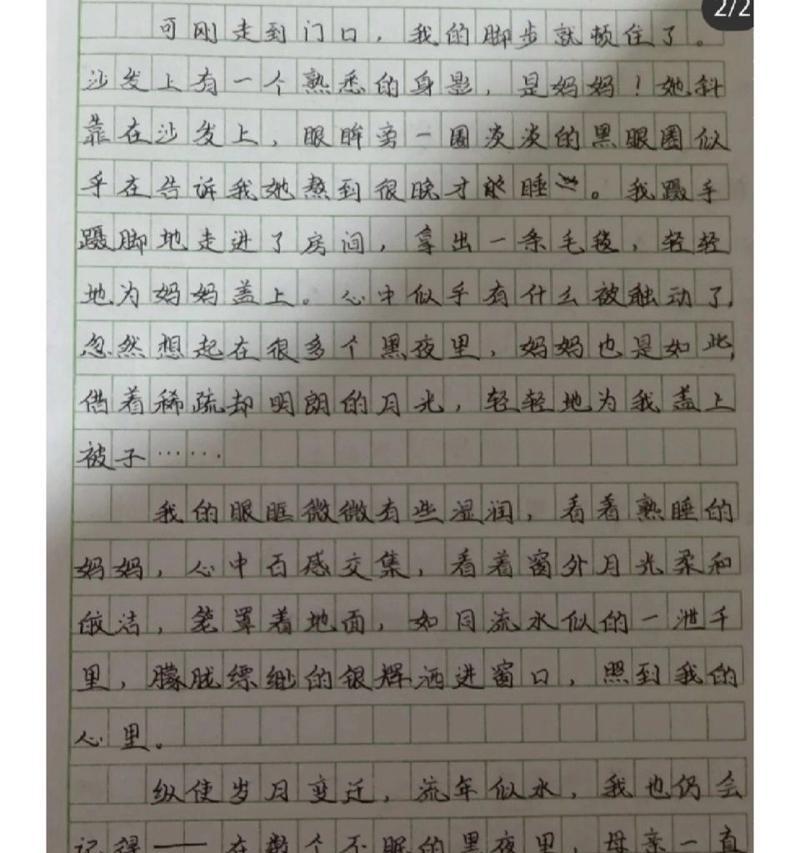 2/2
可刚走到门口，我的脚步就顿住了。
沙发上有一个熟悉的身影，是妈妈！她斜
靠在沙发上，眼眸旁一圈淡淡的黑眼圈似
乎在告诉我她熬到很晚才睡。我蹑手
蹑脚地走进了房间，拿出一条毛毯，轻轻
地为妈妈盖上。心中似乎有什么被触动了，
忽然想起在很多个黑夜里，妈妈也是如此，
借着稀疏却明朗的月光，轻轻地为我盖上
被子……
我的眼眶微微有些湿润，看着熟睡的
妈妈，心中百感交集，看着窗外月光柔和
皎洁，笼罩着地面，如同流水似的一泄千
里，朦胧缥缈的银辉洒进窗口，照到我的
心里。
纵使岁月变迁，流年似水，我也仍会
记得——在数个不眠的黑夜里，母亲一直